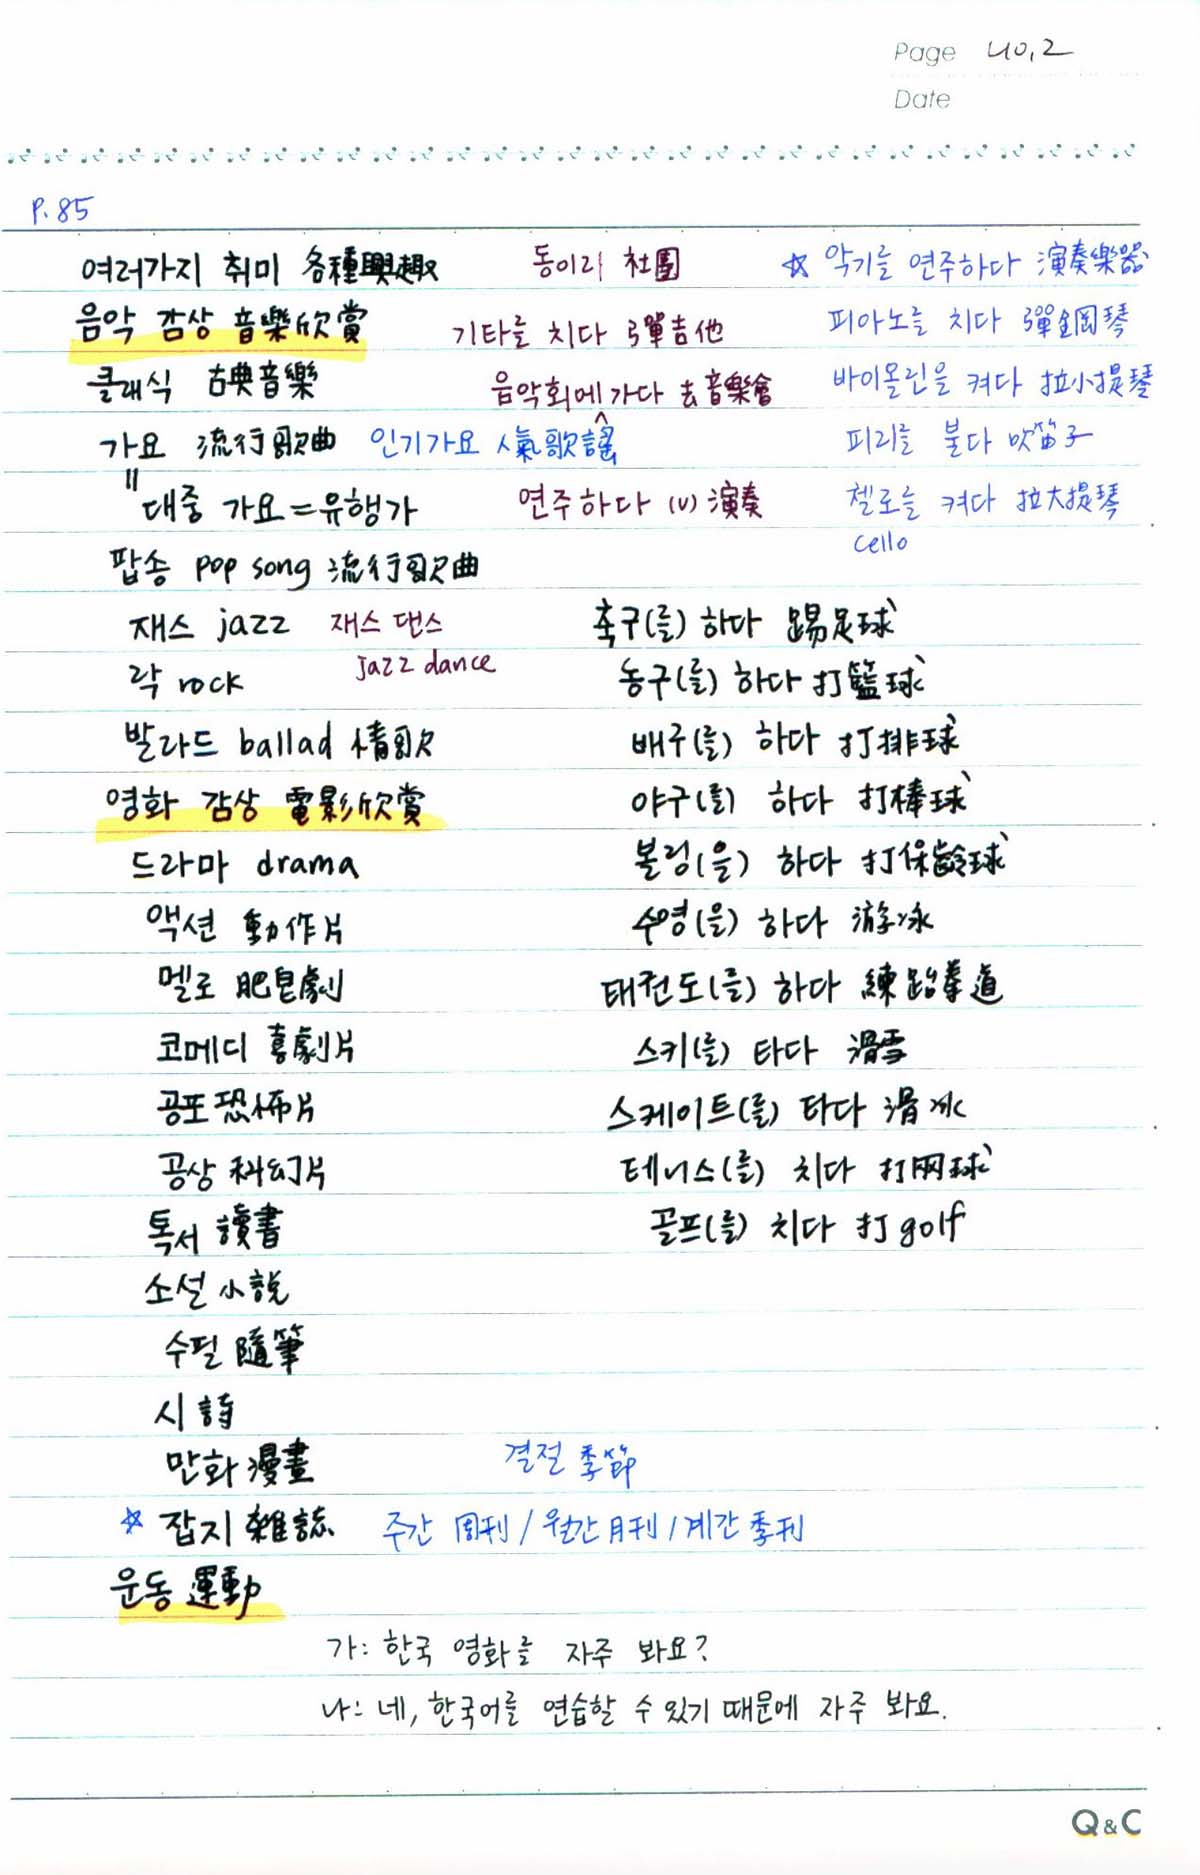 Page no.2
Date
P.85
여러가지 취미 各種興趣 동아리 社團 ☆ 악기를 연주하다 演奏樂器
음악 감상 音樂欣賞 기타를 치다 彈吉他 피아노를 치다 彈鋼琴
클래식 古典音樂 음악회에 가다 去音樂會 바이올린을 켜다 拉小提琴
가요 流行歌曲 인기가요 人氣歌謠 피리를 불다 吹笛子
= 대중 가요=유행가 연주하다 (v) 演奏 첼로를 켜다 拉大提琴
cello
팝송 pop song 流行歌曲
재스 jazz 재스 댄스 축구(를) 하다 踢足球
jazz dance
락 rock 농구(를) 하다 打籃球
발라드 ballad 情歌 배구(를) 하다 打排球
영화 감상 電影欣賞 야구(를) 하다 打棒球
드라마 drama 볼링(을) 하다 打保齡球
액션 動作片 수영(을) 하다 游泳
멜로 肥皂劇 태권도(를) 하다 練跆拳道
코메디 喜劇片 스키(를) 타다 滑雪
공포 恐怖片 스케이트(를) 타다 滑冰
공상 科幻片 테니스(를) 치다 打网球
독서 讀書 골프(를) 치다 打golf
소설 小說
수필 隨筆
시 詩
만화 漫畫 결절 季節
☆ 잡지 雜誌 주간 周刊 / 월간 月刊 / 계간 季刊
운동 運動
가: 한국 영화를 자주 봐요?
나: 네, 한국어를 연습할 수 있기 때문에 자주 봐요.
Q&C